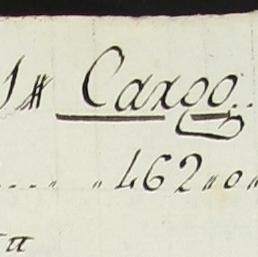 Cargo..
.... „ 462„0„